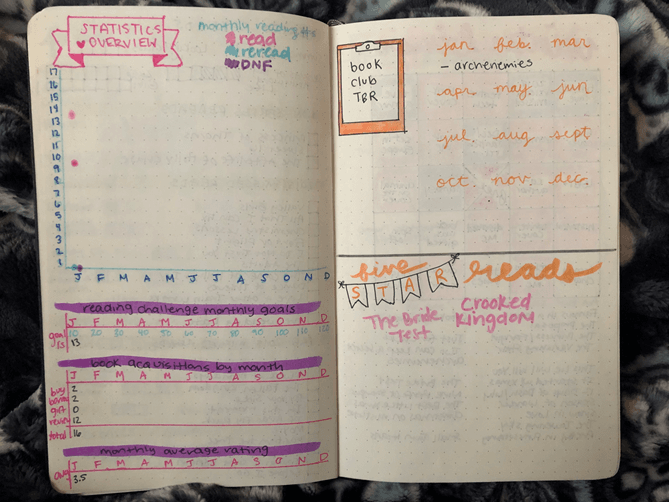 STATISTICS
OVERVIEW
monthly reading #s
read
reread
DNF
17
16
15
14
13
12
11
10
9
8
7
6
5
4
3
2
1
J F M A M J J A S O N D
reading challenge monthly goals
J F M A M J J A S O N D
goal 10 20 30 40 50 60 70 80 90 100 110 120
13
book acquisitions by month
J F M A M J J A S O N D
buy 2
2
gift 0
12
total 16
monthly average rating
J F M A M J J A S O N D
avg 3.5
book
club
TBR
jan feb. mar
- archenemies
apr may. jun
jul. aug sept
oct. nov. dec.
five
STAR
reads
The Bride
Test
Crooked
Kingdom